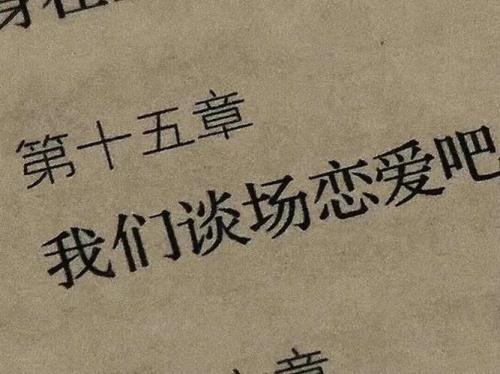 第十五章
我们谈场恋爱吧
章